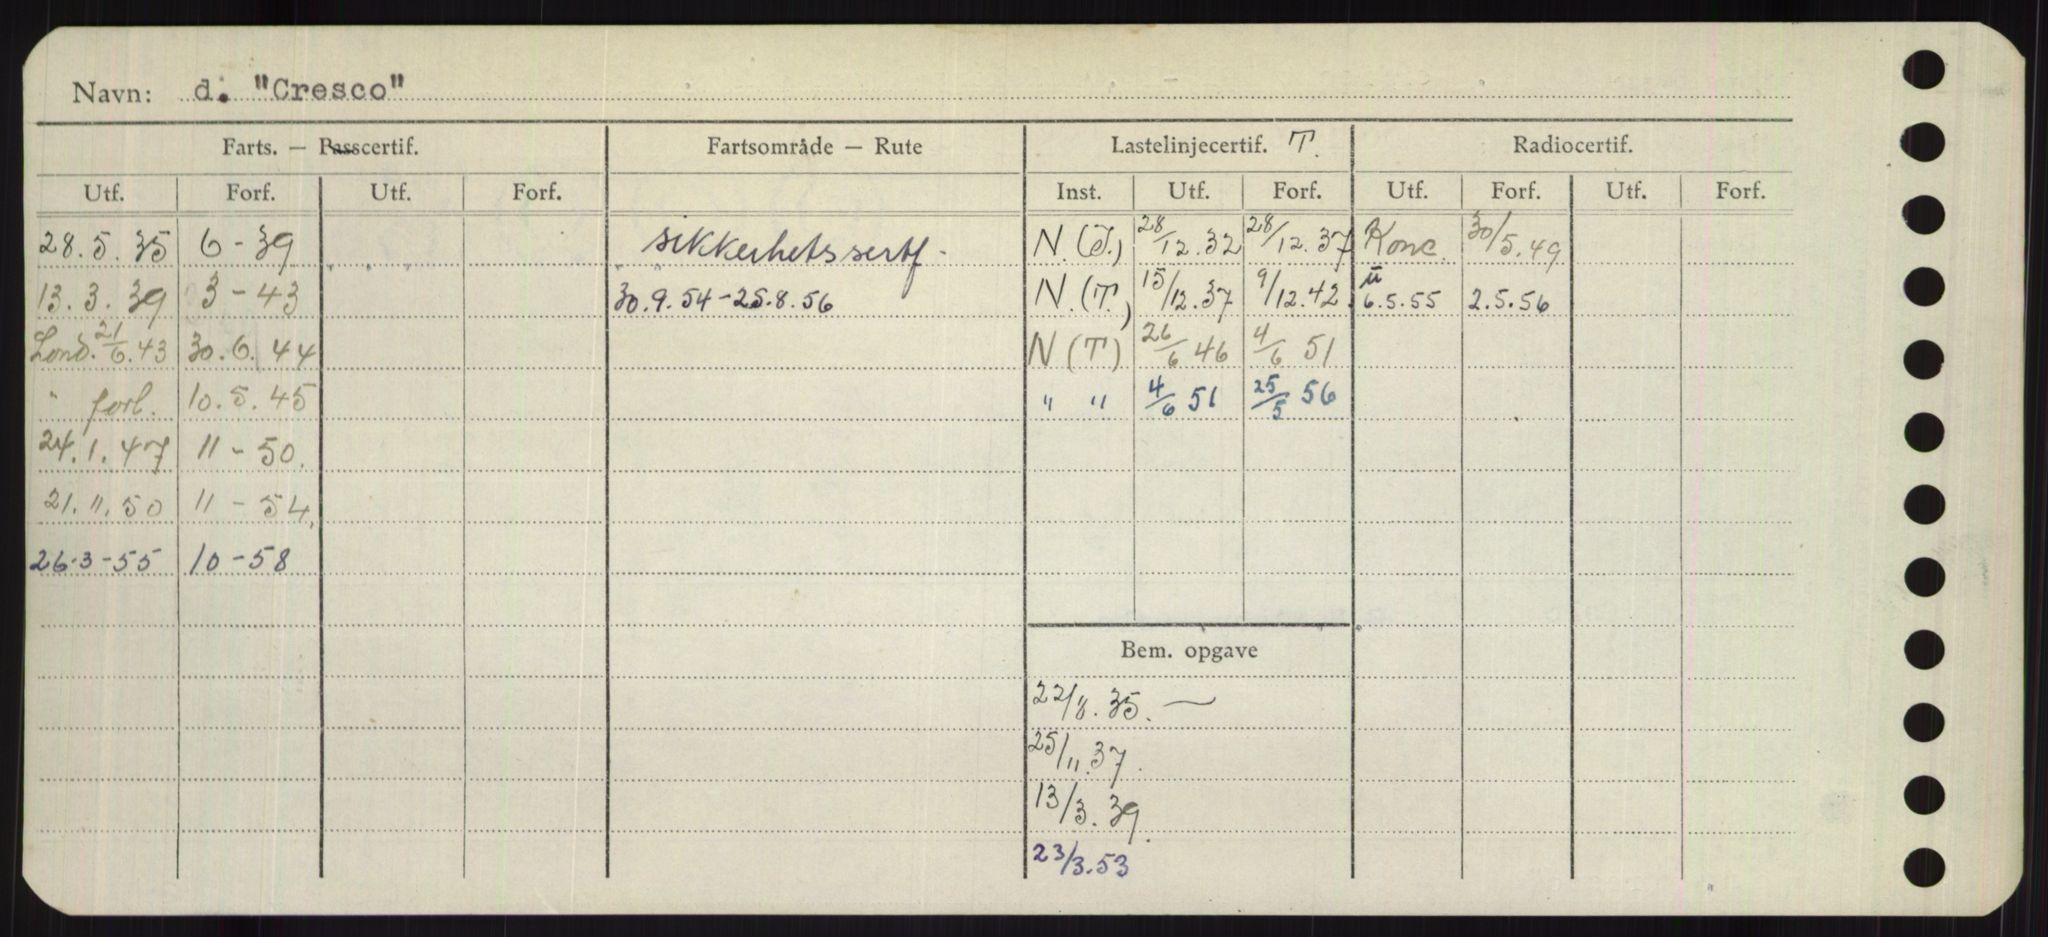 Navn: d. "Cresco"
Farts. — Passcertif. Fartsområde — Rute Lastelinjecertif. T. Radiocertif.
Utf. Forf. Utf. Forf. Inst. Utf. Forf. Utf. Forf. Utf. Forf.
28.5.35 6-39 sikkerhetssertf- N.(T.) 28/12.32 28/12.37 Konc. 30/5.49
13.3.39 3-43 30.9.54-25.8.56 N.(T.) 15/12.37 9/12.42. u 6.5.55 2.5.56
Lond. 21/6.43 30.6.44 N(T) 26/6 46 4/6 51
" forl. 10.5.45 " " 4/6 51 25/5 56
24.1.47 11-50.
21.11.50 11-54.
26-3-55 10-58
Bem. opgave
22/8.35. —
25/11.37.
13/3.39.
23/3.53